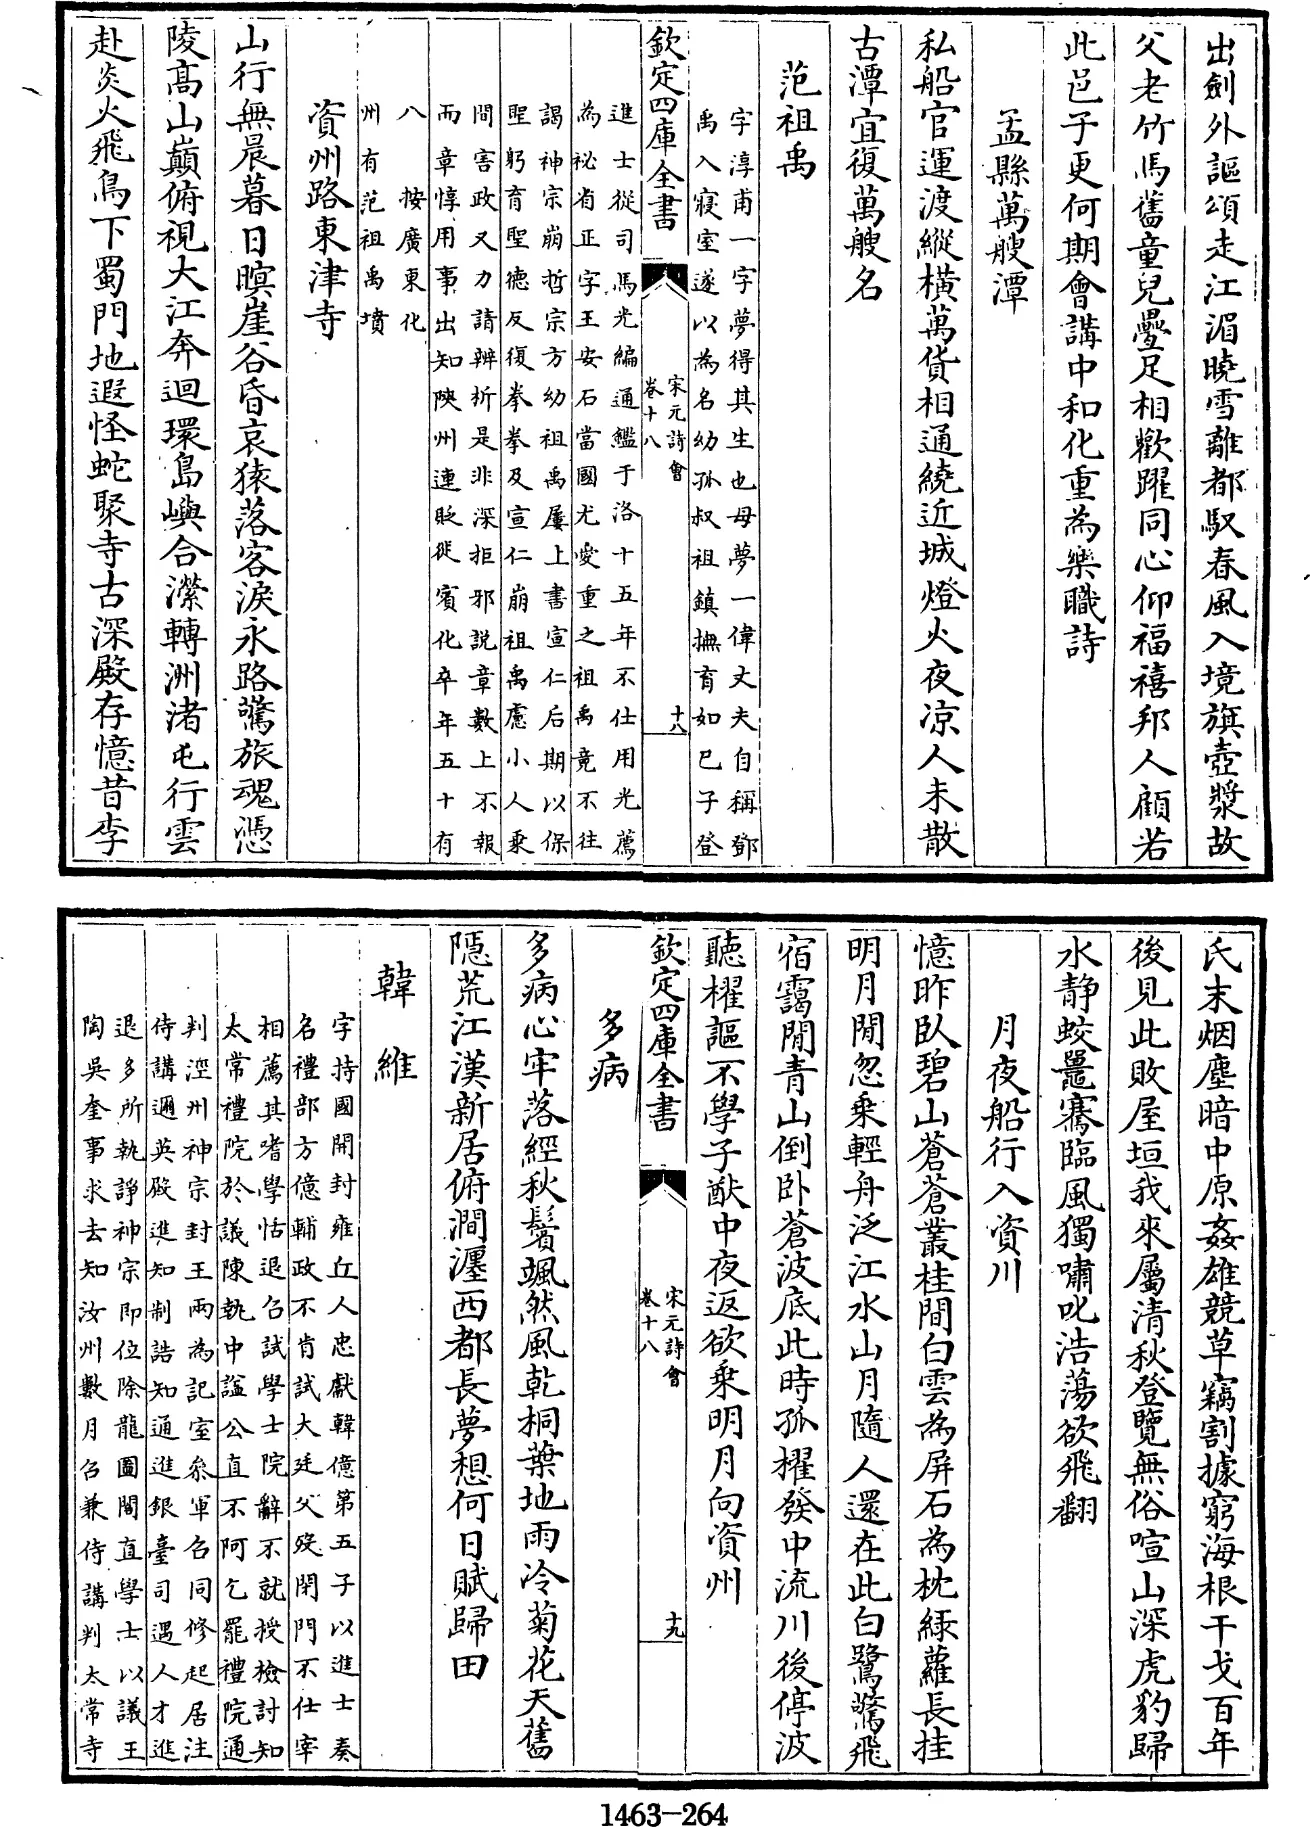 出劍外謳頌走江湄曉雪離都馭春風入境旗壺漿故
父老竹馬舊童兒疊足相歡躍同心仰福禧邦人顧若
此邑子更何期會講中和化重為樂職詩
孟縣萬艘潭
私船官運渡縱橫萬貨相通繞近城燈火夜凉人未散
古潭宜復萬艘名
范祖禹
字淳甫一字夢得其生也母夢一偉丈夫自稱鄧
禹入寢室遂以為名幼孤叔祖鎮撫育如已子登
欽定四庫全書
宋元詩會
卷十八
十八
進士從司馬光編通鑑于洛十五年不仕用光薦
為祕省正字王安石當國尤愛重之祖禹竟不往
謁神宗崩哲宗方幼祖禹屢上書宣仁后期以保
聖躬育聖德反復拳拳及宣仁崩祖禹慮小人乘
間害政又力請辨析是非深拒邪説章數上不報
而章惇用事出知陜州連貶徙賓化卒年五十有
八　按廣東化
州有范祖禹墳
資州路東津寺
山行無晨暮日暝崖谷昏哀猿落客淚永路驚旅魂憑
陵高山巔俯視大江奔迴環島嶼合瀠轉洲渚屯行雲
赴炎火飛鳥下蜀門地遐怪蛇聚寺古深殿存憶昔李
氏末烟塵暗中原姦雄競草竊割據窮海根干戈百年
後見此敗屋垣我來屬清秋登覽無俗喧山深虎豹歸
水静蛟鼉騫臨風獨嘯叱浩蕩欲飛翻
月夜船行入資川
憶昨臥碧山蒼蒼叢桂間白雲為屏石為枕緑蘿長挂
明月間忽乘輕舟泛江水山月隨人還在此白鷺驚飛
宿靄閒青山倒卧蒼波底此時孤櫂發中流川後停波
聽櫂謳不學子猷中夜返欲乘明月向資州
欽定四庫全書
宋元詩會
卷十八
十九
多病
多病心牢落經秋鬢颯然風乾桐葉地雨冷菊花天舊
隱荒江漢新居俯澗瀍西都長夢想何日賦歸田
韓維
字持國開封雍丘人忠獻韓億第五子以進士奏
名禮部方億輔政不肯試大廷父歿閉門不仕宰
相薦其嗜學恬退召試學士院辭不就授檢討知
太常禮院於議陳執中諡公直不阿乞罷禮院通
判涇州神宗封王兩為記室叅軍召同修起居注
侍講邇英殿進知制誥知通進銀臺司遇人才進
退多所執諍神宗即位除龍圖閣直學士以議王
陶吳奎事求去知汝州數月召兼侍講判太常寺
1463-264